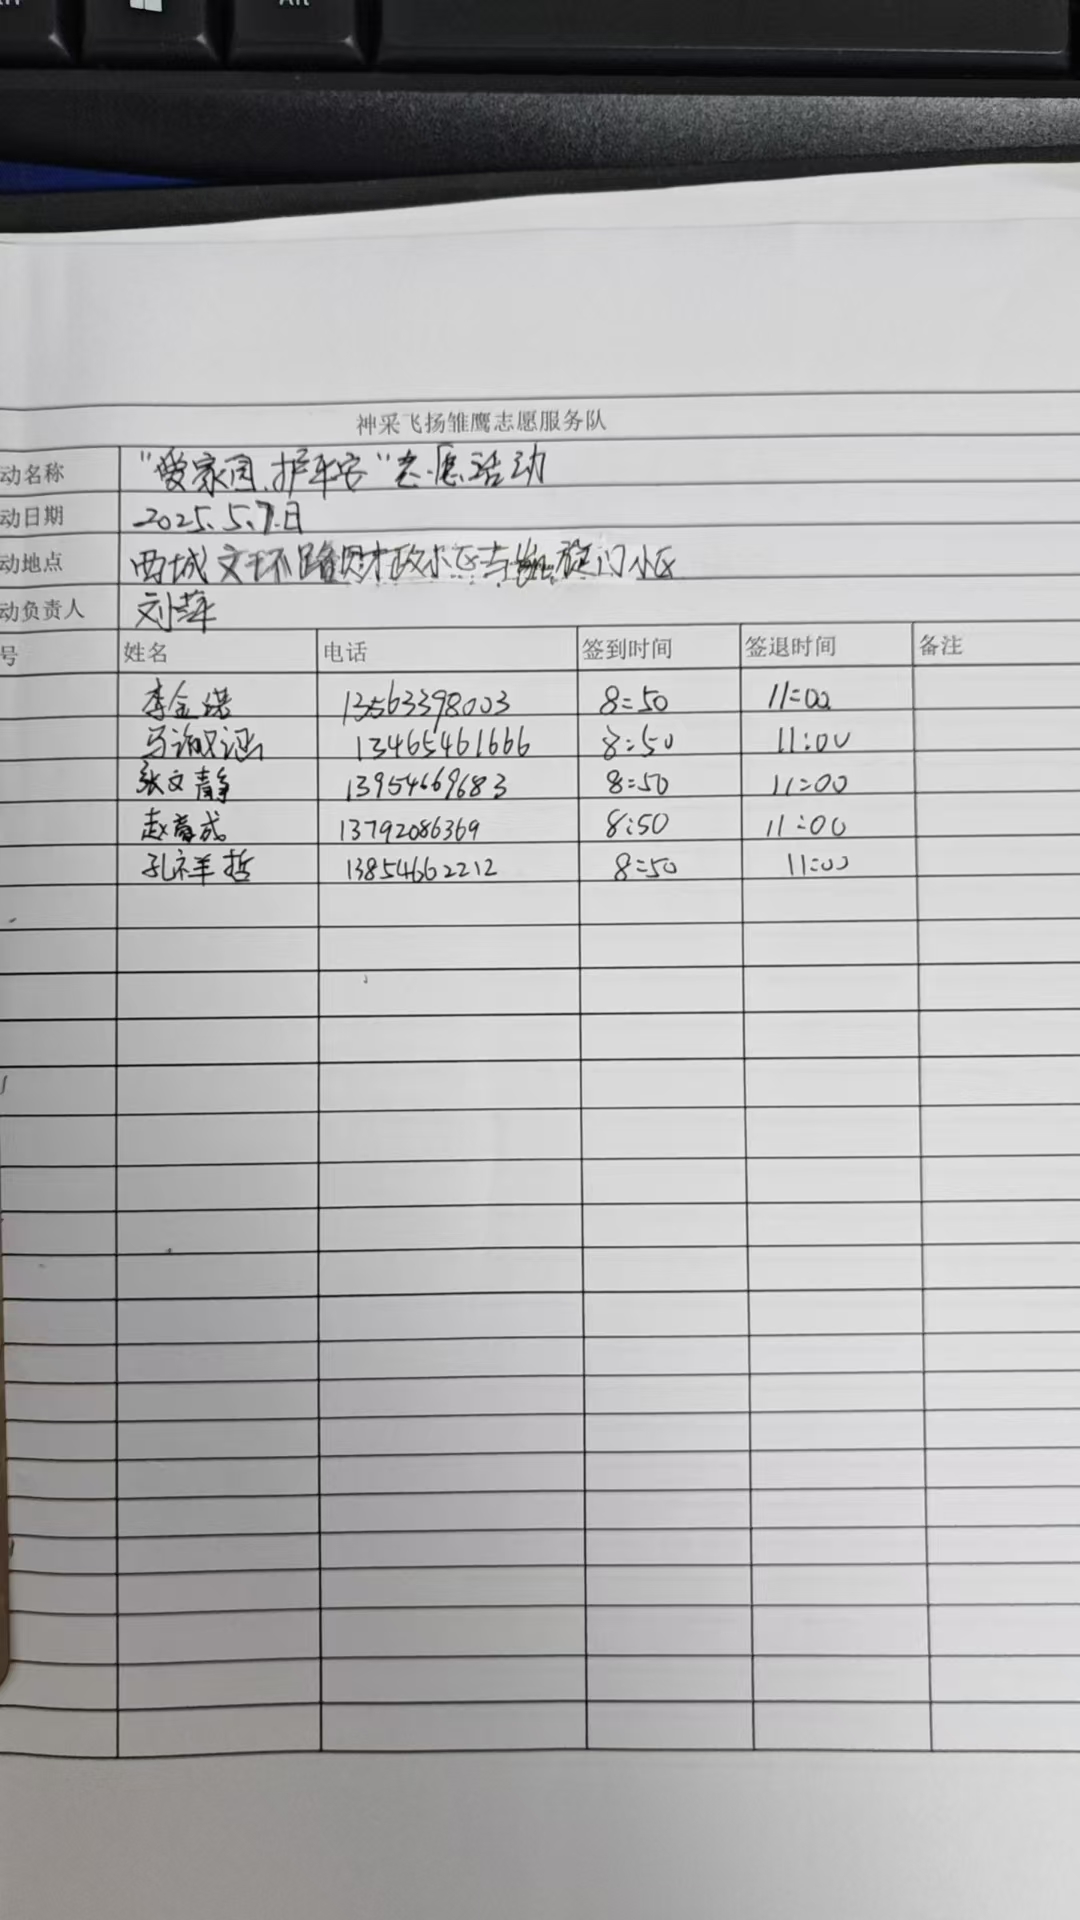 Alt
神采飞扬雏鹰志愿服务队
动名称 "爱家园、护平安"志愿活动
动日期 2025.5.7.日
动地点 西城文环路财政小区 旋门小区
动负责人 刘萍
号 姓名 电话 签到时间 签退时间 备注
李金诺 13563398003 8:50 11:00
马 涵 13465461666 8:50 11:00
张文静 13954669683 8:50 11:00
赵 成 13792086369 8:50 11:00
孔祥哲 13854662212 8:50 11:00